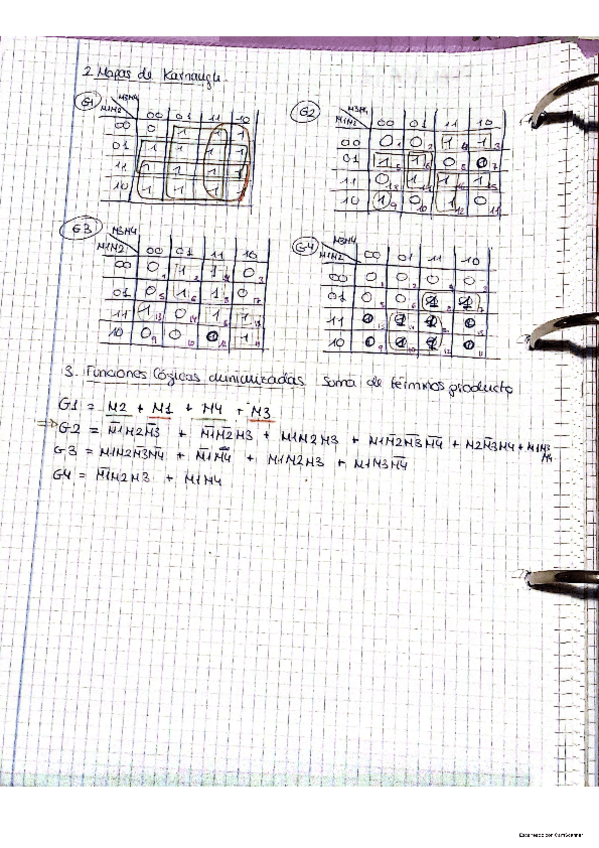 2 Mapas de Karnaugh.
G1 M3M4
M1M2 00 01 11 10
00 0 1 1 1
01 1 1 1 1
11 1 1 1 1
10 1 1 1 1
G2 M3M4
M1M2 00 01 11 10
00 0 1 0 2 1 4 1 3
01 1 5 1 6 0 8 0 7
11 0 13 1 14 1 16 1 15
10 1 9 0 10 1 12 0 11
G3 M3M4
M1M2 00 01 11 10
00 0 1 1 2 1 4 0 3
01 0 5 1 6 1 8 0 7
11 1 13 0 14 1 1 15
10 0 9 0 10 0 12 1 11
G4 M3M4
M1M2 00 01 11 10
00 0 0 0 0
01 0 5 0 6 1 8 1 7
11 0 1 1 0
10 0 1 1 0
3. Funciones lógicas minimizadas soma de términos producto
G1 = M2 + M1 + M4 + M3
⇒ G2 = M̅1M2M̅3 + M̅1M̅2M3 + M1M2M3 + M1M̅2M̅3M̅4 + M2M̅3M4 + M1M3M4
G3 = M1M2M̅3M̅4 + M̅1M4 + M1M2M3 + M1M3M̅4
G4 = M̅1M2M3 + M1M4
Escaneado con CamScanner